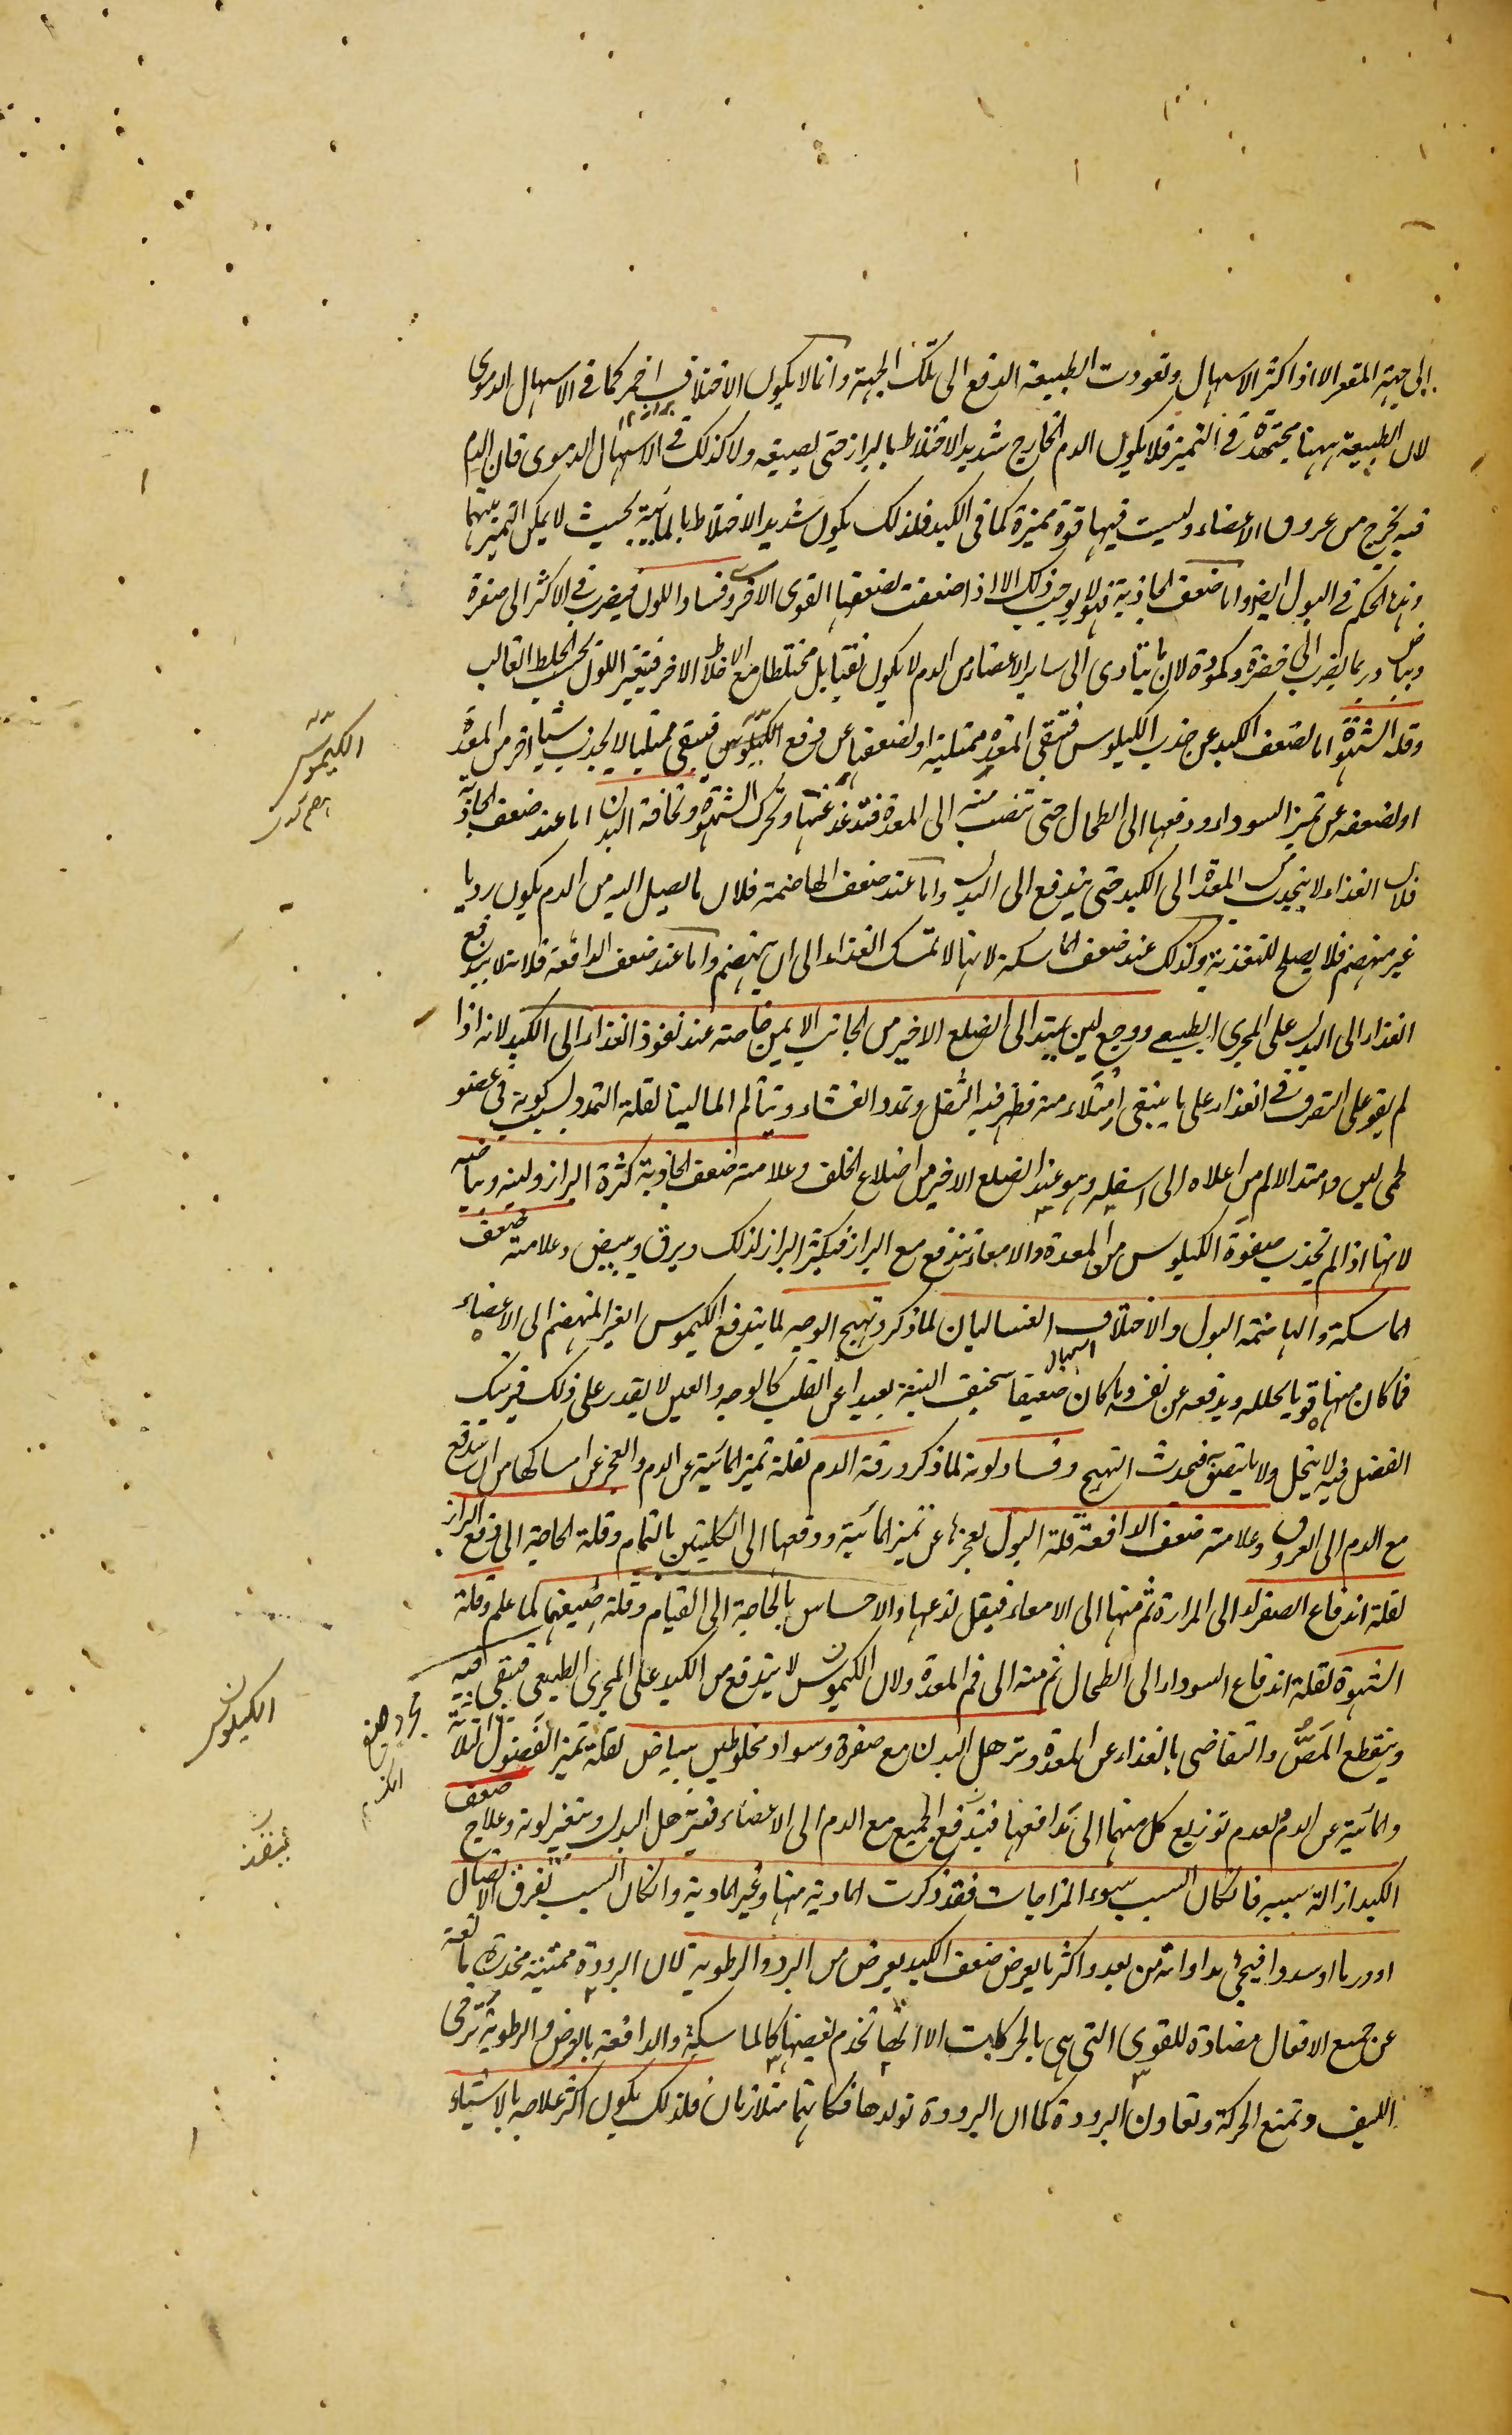 الى جهة المقعر الا اذا كثر الاسهال وتعودت الطبيعة الدفع الى تلك الجهة وانما لا يكون الاختلاف احمر كما في الاسهال الدموى
لان الطبيعة ههنا مجتهدة في التميز فلا يكون الدم الخارج شديد الاختلاط بالبراز حتى يصبغه ولا كذلك في الاسهال الدموى فان الدم
فيه يخرج من عروق الاعضاء وليست فيها قوة مميزة كما في الكبد فلذلك يكون شديد الاختلاط بالمائية بحيث لا يمكن التميز بينهما
وهذا الحكم في البول ايضا واما ضعف الجاذبة فهو لا يوجب ذلك الا اذا ضعفت لضعفها القوى الاخر وفساد اللون فيضرب في الاكثر الى صفرة
وبياض وربما يضرب الى خضرة وكمودة لان ما يتادى الى ساير الاعضاء من الدم لا يكون نقيا بل مختلطا مع الاخلاط الاخر فيتغير اللون بحسب الخلط الغالب
وقلة الشهوة اما لضعف الكبد عن جذب الكيلوس فتبقى المعدة ممتلية او لضعفها عن دفع الكيلوس فتبقى ممتليا لا يجذب شيا اخر من المعدة
او لضعفه عن تميز السوداء ودفعها الى الطحال حتى تنصب منه الى المعدة فتدغدغها وتحرك الشهوة ونحافة البدن اما عند ضعف الجاذبة
فلان الغذاء لا ينجذب من المعدة الى الكبد حتى يندفع الى البدن واما عند ضعف الهاضمة فلان ما يصل اليه من الدم يكون رديا
غير منهضم فلا يصلح للتغذية وكذلك عند ضعف الماسكة لانها لا تمسك الغذاء الى ان ينهضم واما عند ضعف الدافعة فلانه لا يندفع
الغذاء الى البدن على المجرى الطبيعى ووجع لين يمتد الى الضلع الاخير من الجانب الايمن خاصة عند نفوذ الغذاء الى الكبد لانه اذا
لم يقو على التصرف في الغذاء على ما ينبغى امتلاء منه فظهر فيه الثقل وتمدد الغشاء وتتألم الما لينا لقلة التمدد بسبب كونه في عضو
لحمى لين وامتد الالم من اعلاه الى اسفله وهو عند الضلع الاخير من اضلاع الخلف وعلامة ضعف الجاذبة كثرة البراز ولينه وبياضه
لانها اذا لم تجذب صفوة الكيلوس من المعدة والامعاء يندفع مع البراز فيكثر البراز لذلك ويرق ويبيض وعلامة ضعف
الماسكة والهاضمة البول والاختلاف الغساليان لما ذكر وتهيج الوجه لما يندفع الكيموس الغير المنهضم الى الاعضاء
فما كان منها قويا يحلله ويدفعه عن نفسه وما كان ضعيفا سخيف البنية بعيدا عن القلب كالوجه والعين لا يقدر على ذلك فيرتبك
الفضل فيه لا يتحل ولا يلتصق فيحدث التهيج وفساد لونه لما ذكر ورقة الدم لقلة تميز المائية عن الدم والعجز عن امساكها من ان يندفع
مع الدم الى العروق وعلامة ضعف الدافعة قلة البول لعجزها عن تميز المائية ودفعها الى الكليتين بالتمام وقلة الحاجة الى دفع البراز
لقلة اندفاع الصفراء الى المرارة ثم منها الى الامعاء فيقل لذعها والاحساس بالحاجة الى القيام وقلة صبغهما كما علم وقلة
الشهوة لقلة اندفاع السوداء الى الطحال ثم منه الى فم المعدة ولان الكيموس لا يندفع من الكبد على المجرى الطبيعى فيبقى فيه
وينقطع المَصُّ والتقاضى بالغذاء عن المعدة وترهل البدن مع صفرة وسواد مخلوطين ببياض لقلة تميز الفضول الثلاثة
والمائية عن الدم ولعدم توزيع كل منها الى مدافعها فيندفع الجميع مع الدم الى الاعضاء فيترهل البدن ويتغير لونه وعلاج ضعف
الكبد ازالة سببه فان كان السبب سوء المزاجات فقد ذكرت المادية منها وغير المادية وان كان السبب تفرق الاتصال
او ورما او سددا فيجئ مداواته من بعد واكثر ما يعرض ضعف الكبد يعرض من البرد والرطوبة لان البرودة مميتة مخدرة مانعة
عن جميع الافعال مضادة للقوى التى هى بالحركات الا انها تخدم بعضها كالماسكة والدافعة بالعرض والرطوبة ترخى
الليف وتمنع الحركة وتعاون البرودة كما ان البرودة تولدها فكانهما متلازمان فلذلك يكون اكثر علاجه بالاشياء
الكيموس
الكيلوس